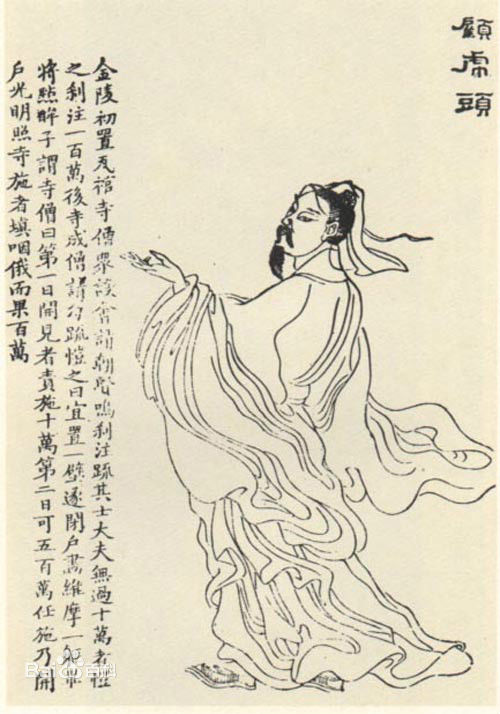 顧虎頭
金陵初置瓦棺寺僧眾設會請朝賢鳴刹注疏其士大夫無過十萬者愷
之刹注一百萬後寺成僧請勾疏愷之曰宜置一壁遂閉戶畫維摩一軀畢
將點眸子謂寺僧曰第一日開見者責施十萬第二日可五百萬任施乃開
戶光明照寺施者填咽俄而果百萬
Bai百科